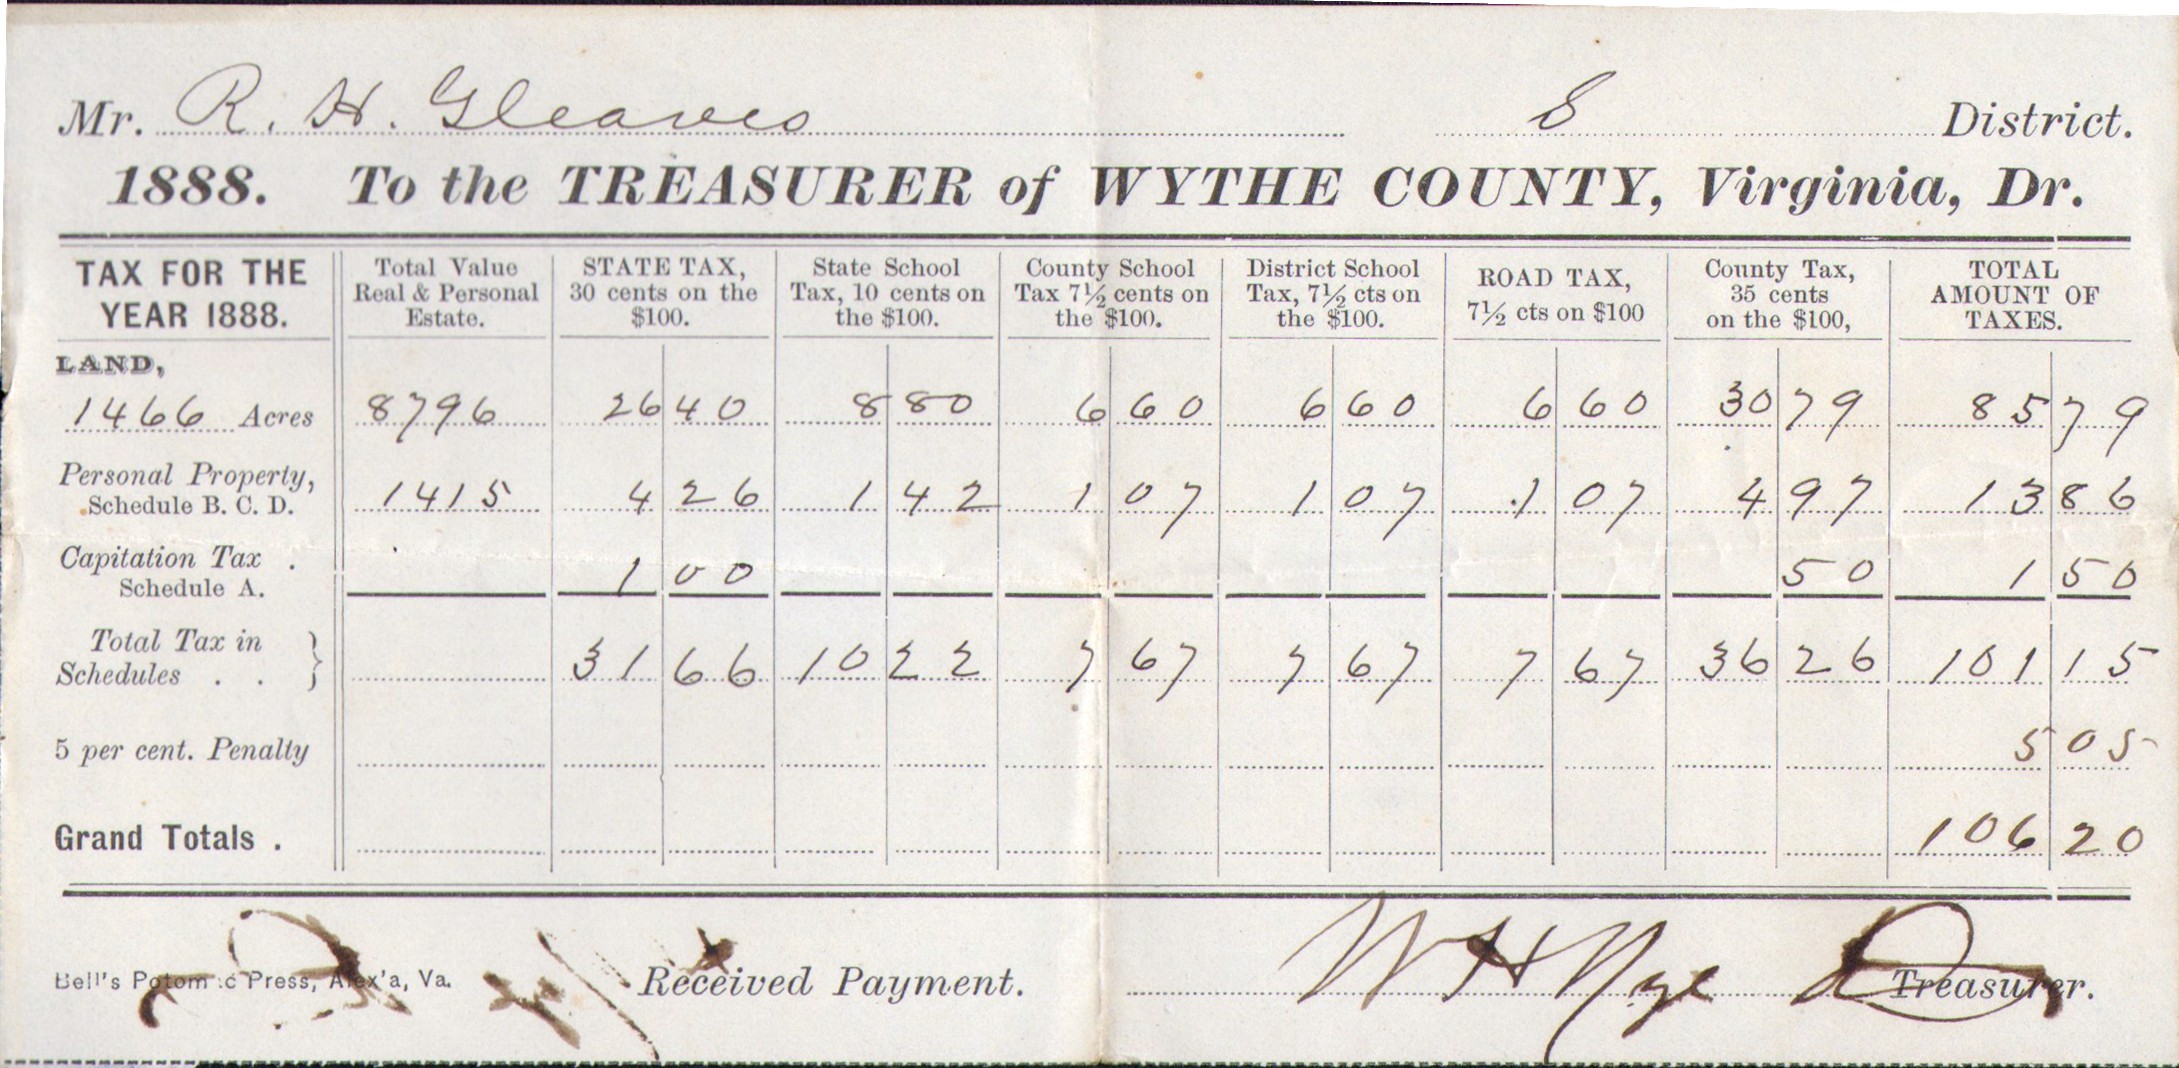 Mr. R. H. Gleaves 8 District.
1888. To the TREASURER of WYTHE COUNTY, Virginia, Dr.
TAX FOR THE YEAR 1888.
Total Value Real & Personal Estate.
STATE TAX, 30 cents on the $100.
State School Tax, 10 cents on the $100.
County School Tax 7½ cents on the $100.
District School Tax, 7½ cts on the $100.
ROAD TAX, 7½ cts on $100
County Tax, 35 cents on the $100,
TOTAL AMOUNT OF TAXES.
LAND,
1466 Acres 8796 26 40 8 80 6 60 6 60 6 60 30 79 85 79
Personal Property,
Schedule B. C. D. 1415 4 26 1 42 1 07 1 07 1 07 4 97 13 86
Capitation Tax .
Schedule A. 1 00 50 1 50
Total Tax in
Schedules . . } 31 66 10 22 7 67 7 67 7 67 36 26 101 15
5 per cent. Penalty 5 05
Grand Totals . 106 20
Bell's Potomac Press, Alex'a, Va. Received Payment. W H Treasurer.